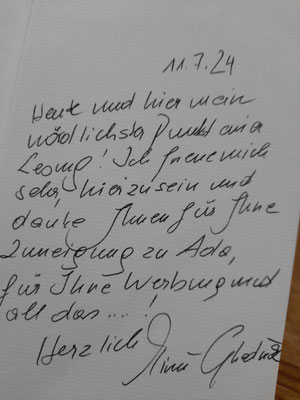 11.7.24
Heute und hier mein
nördlichster Punkt einer
Lesung! Ich freue mich
sehr, hier zu sein und
danke Ihnen für Ihre
Zuneigung zu Ada,
für Ihre Werbung und
all das ....!
Herzlich